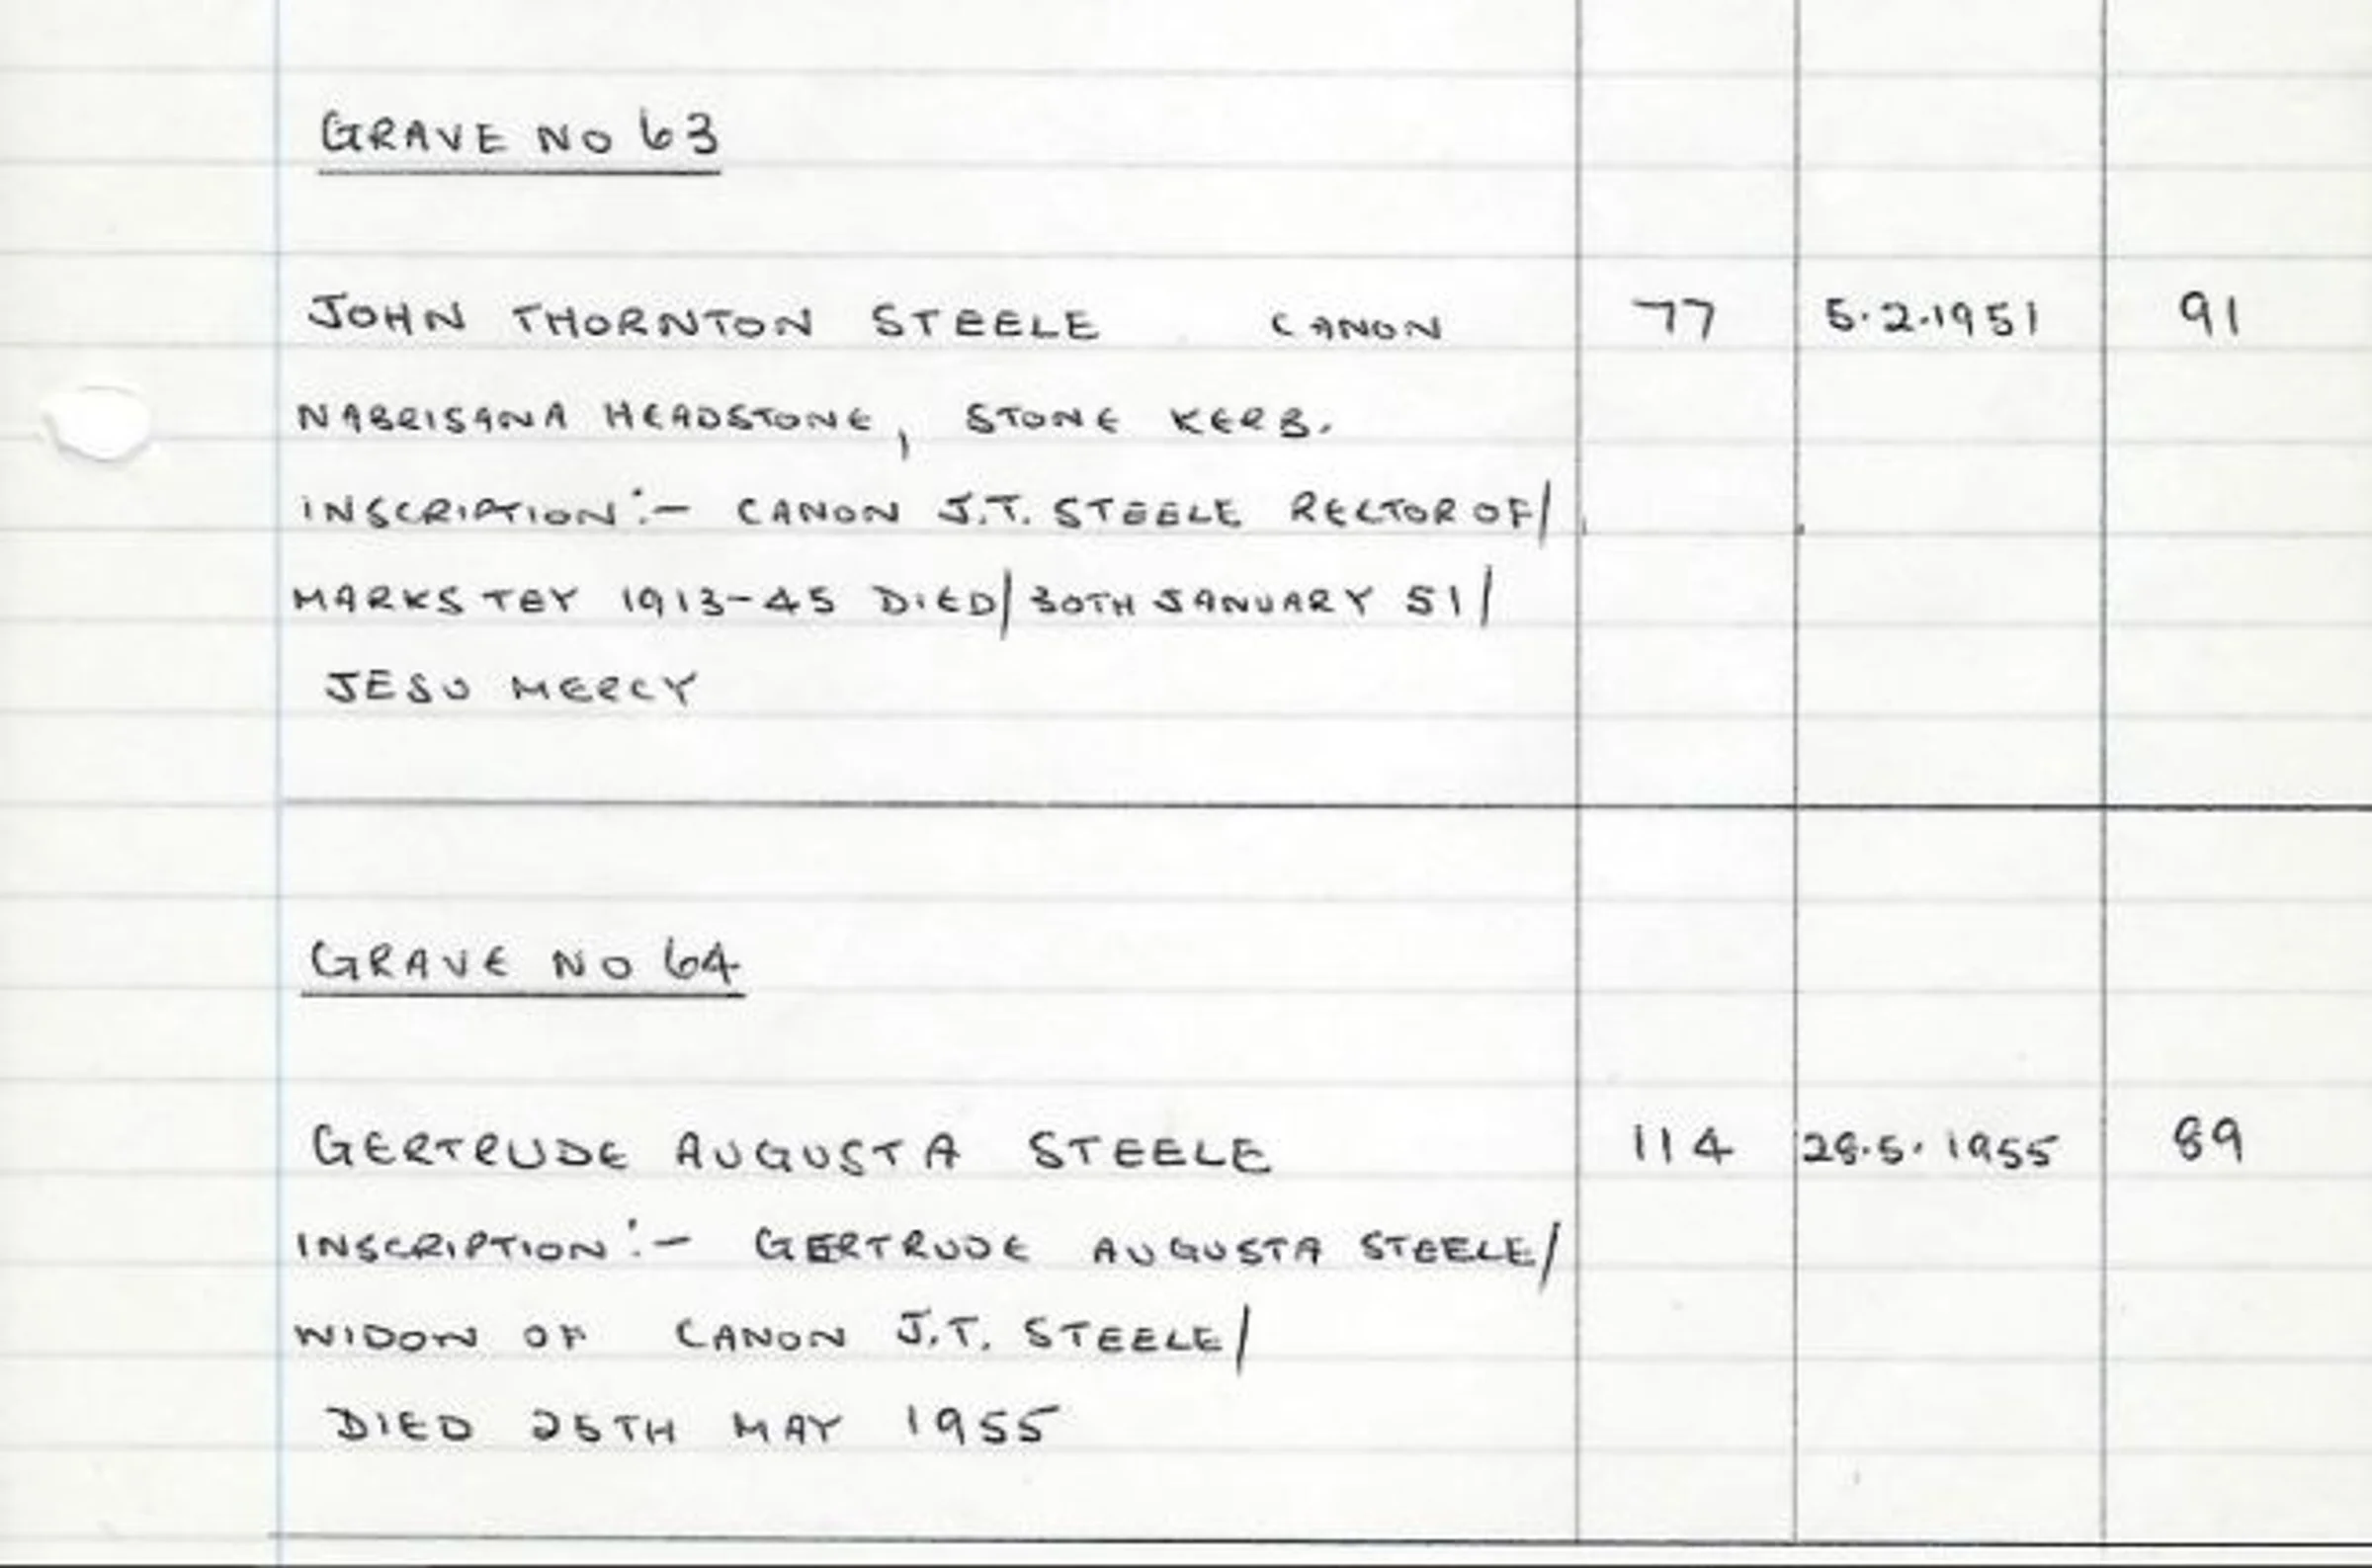 GRAVE NO 63
JOHN THORNTON STEELE CANON 77 5.2.1951 91
NABRISANA HEADSTONE, STONE KERB.
INSCRIPTION:- CANON J.T. STEELE RECTOR OF/
MARKS TEY 1913-45 DIED/ 30TH JANUARY 51/
JESU MERCY
GRAVE NO 64
GERTRUDE AUGUSTA STEELE 114 28.5.1955 89
INSCRIPTION:- GERTRUDE AUGUSTA STEELE/
WIDOW OF CANON J.T. STEELE/
DIED 25TH MAY 1955